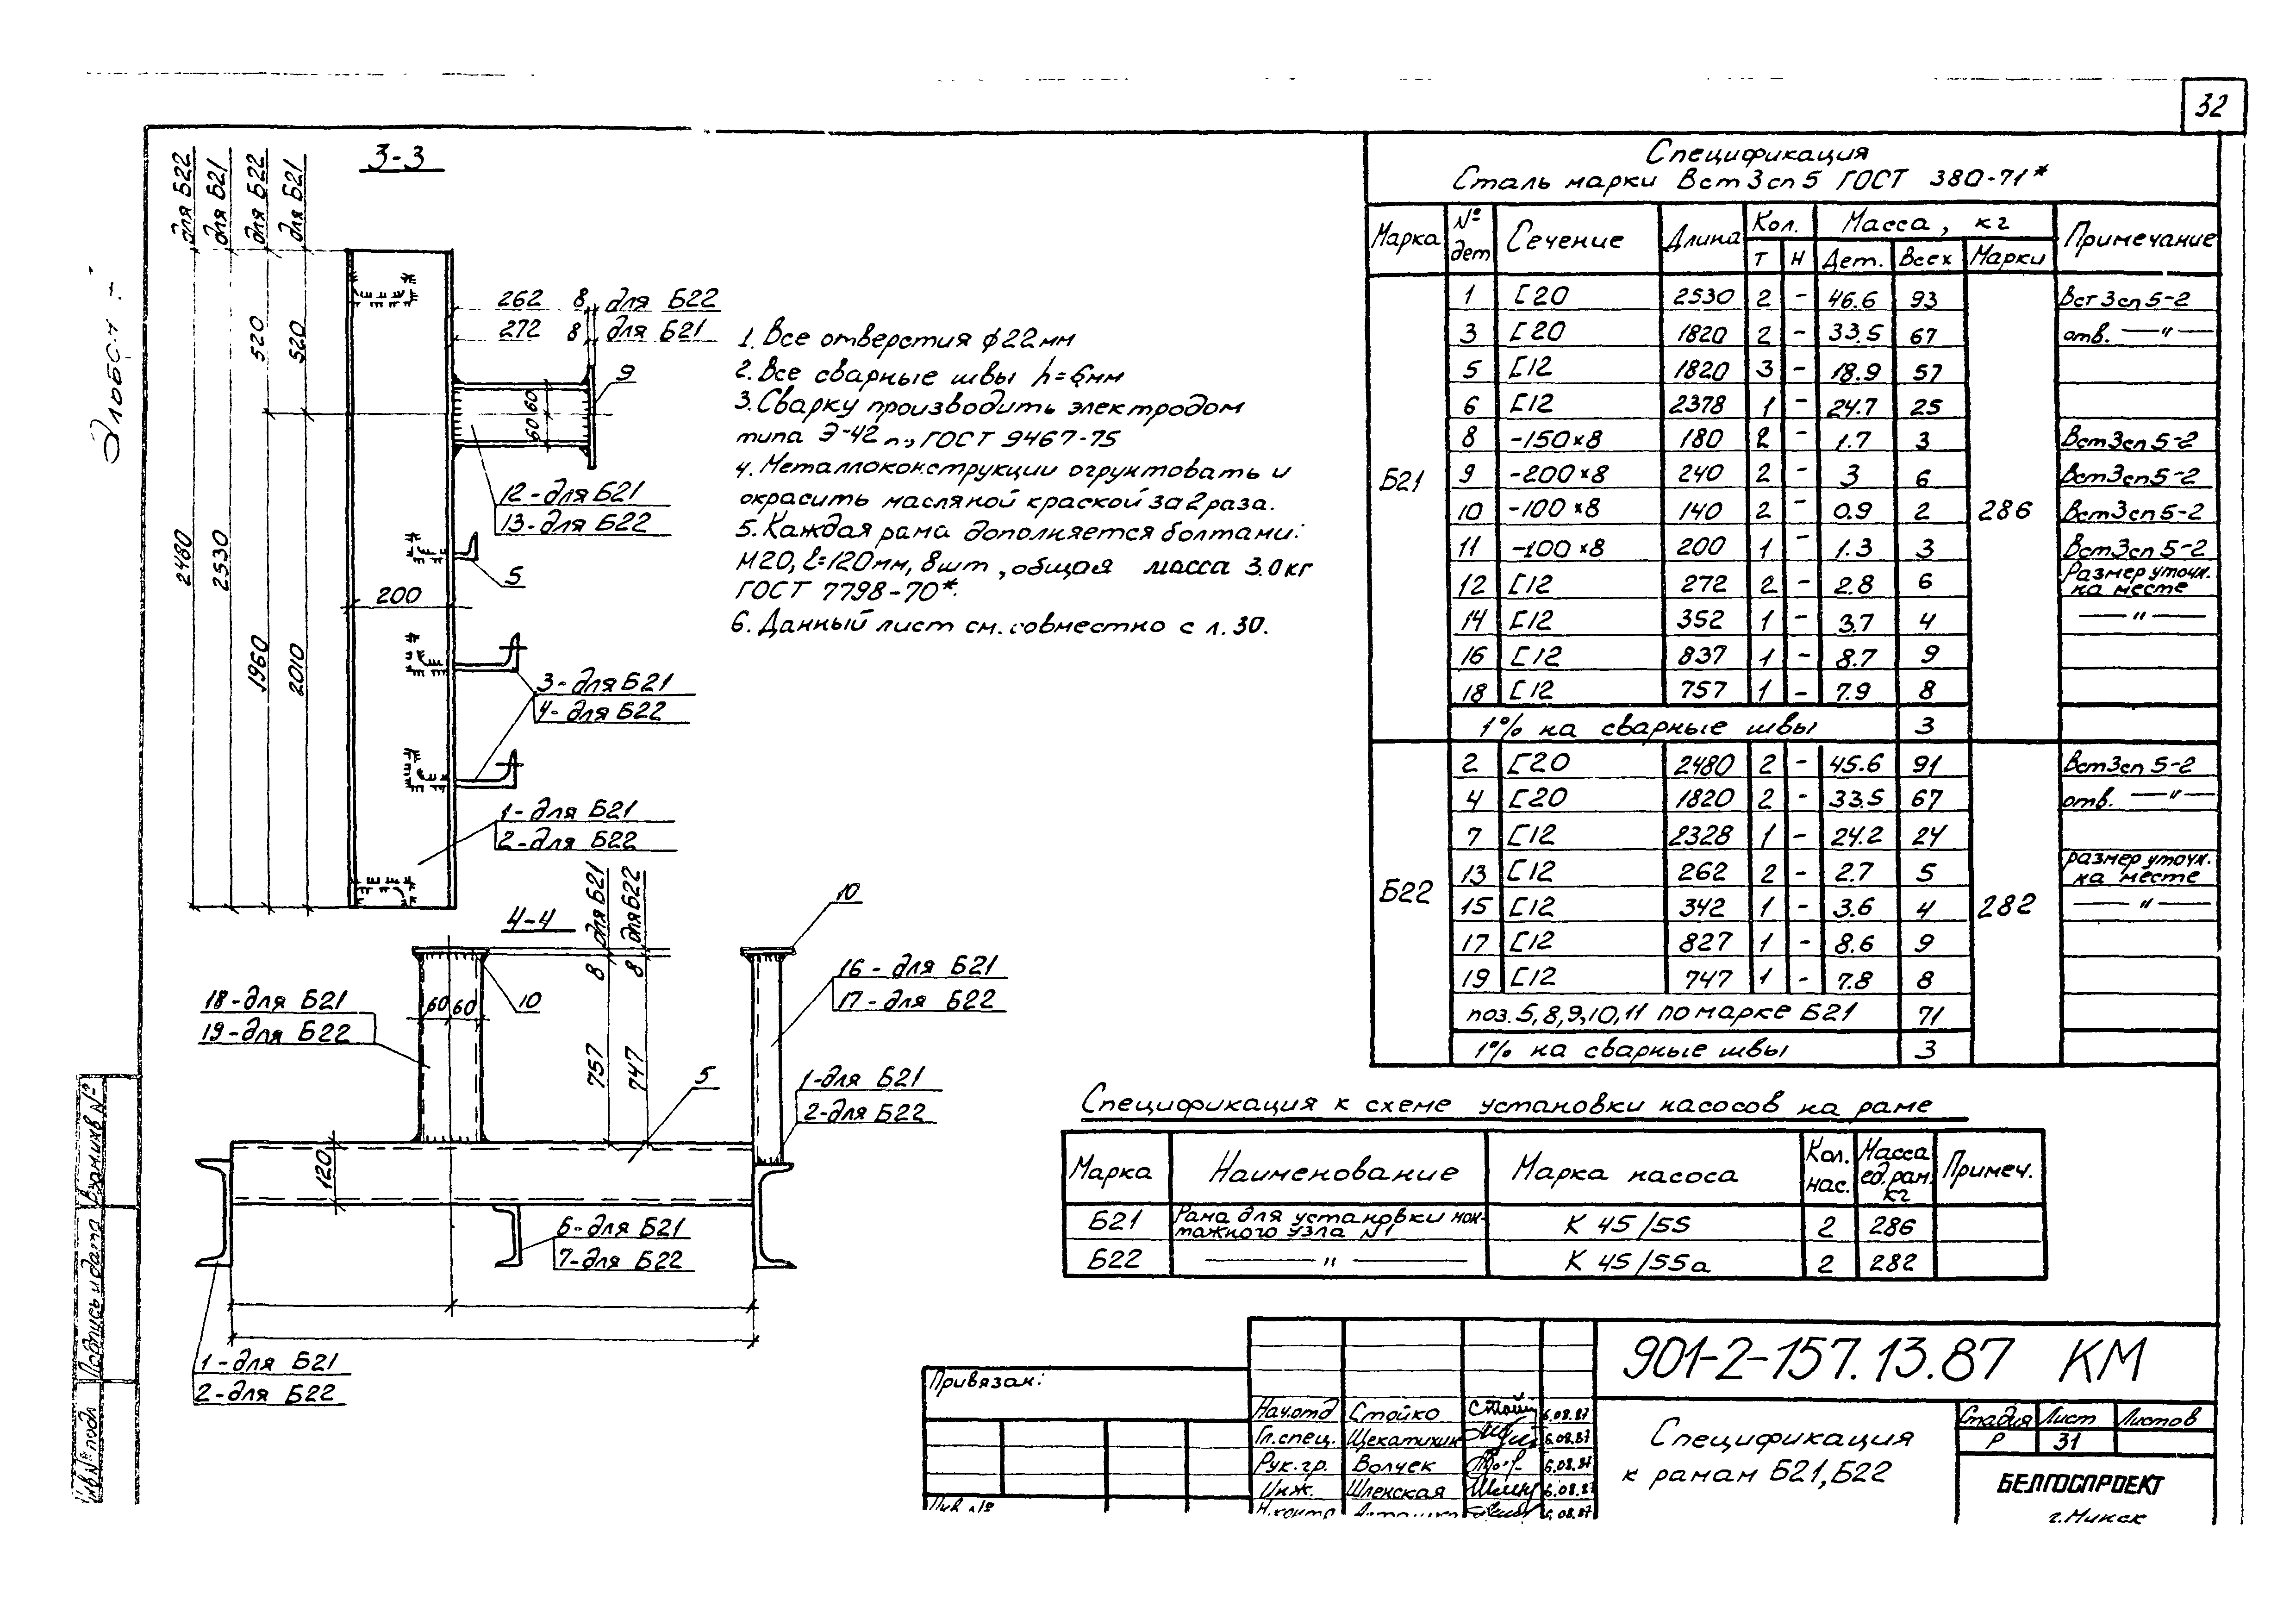 32
Альбом 1
3-3
для Б22
для Б21
для Б22
для Б21
520
520
2480
2530
1960
2010
262 8 для Б22
272 8 для Б21
9
60 60
12-для Б21
13-для Б22
5
200
3-для Б21
4-для Б22
1-для Б21
2-для Б22
1. Все отверстия ф22мм
2. Все сварные швы h=6мм
3. Сварку производить электродом
типа Э-42 п., ГОСТ 9467-75
4. Металлоконструкции огрунтовать и
окрасить масляной краской за 2 раза.
5. Каждая рама дополняется болтами:
М20, ℓ=120мм, 8шт, общая масса 3.0кг
ГОСТ 7798-70*.
6. Данный лист см. совместно с л. 30.
4-4
для Б21
для Б22
8 8
10
10
16-для Б21
17-для Б22
18-для Б21
19-для Б22
60 60
757
747
5
1-для Б21
2-для Б22
120
6-для Б21
7-для Б22
1-для Б21
2-для Б22
Спецификация
Сталь марки Вст3сп5 ГОСТ 380-71*
Марка № дет Сечение Длина Кол. Масса, кг Примечание
т н Дет. Всех Марки
Б21 286
1 [20 2530 2 - 46.6 93 Вст3сп5-2
3 [20 1820 2 - 33.5 67 отв. — " —
5 [12 1820 3 - 18.9 57
6 [12 2378 1 - 24.7 25
8 -150×8 180 2 - 1.7 3 Вст3сп5-2
9 -200×8 240 2 - 3 6 Вст3сп5-2
10 -100×8 140 2 - 0.9 2 Вст3сп5-2
11 -100×8 200 1 - 1.3 3 Вст3сп5-2
12 [12 272 2 - 2.8 6 Размер уточн. на месте
14 [12 352 1 - 3.7 4 — " —
16 [12 837 1 - 8.7 9
18 [12 757 1 - 7.9 8
1% на сварные швы 3
Б22 282
2 [20 2480 2 - 45.6 91 Вст3сп5-2
4 [20 1820 2 - 33.5 67 отв. — " —
7 [12 2328 1 - 24.2 24
13 [12 262 2 - 2.7 5 размер уточн. на месте
15 [12 342 1 - 3.6 4 — " —
17 [12 827 1 - 8.6 9
19 [12 747 1 - 7.8 8
поз. 5,8,9,10,11 по марке Б21 71
1% на сварные швы 3
Спецификация к схеме установки насосов на раме
Марка Наименование Марка насоса Кол. нас. Масса ед. рам. кг Примеч.
Б21 Рама для установки монтажного узла N1 К 45/55 2 286
Б22 — " — К 45/55а 2 282
Привязан:
Инв №
Нач.отд Стойко 6.08.87
Гл.спец. Щекатихин 6.08.87
Рук.гр. Волчек 6.08.87
Инж. Шленская 6.08.87
Н.контр 6.08.87
901-2-157.13.87 КМ
Спецификация
к рамам Б21, Б22
Стадия Лист Листов
Р 31
БЕЛГОСПРОЕКТ
г. Минск
Инв № подл Подпись и дата Взам.инв №